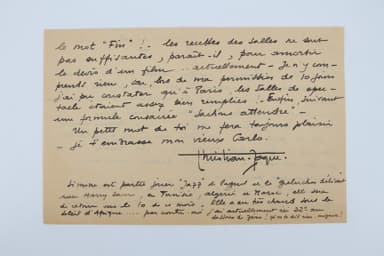 le mot "Fin" !. les recettes des salles ne sont
pas suffisantes, paraît-il, pour amortir
le devis d'un film .. actuellement - Je n'y com-
prends rien, car lors de ma permission de 10 jours
j'ai pu constater qu'à Paris, les salles de spec-
tacle étaient assez bien remplies !. Enfin, suivant
une formule consacrée "Sachons attendre" -
Un petit mot de toi me fera toujours plaisir
- Je t'embrasse mon vieux Carlo.
Christian-Jaque.
Simone est partie jouer "Jazz" de Pagnol et le "
avec Harry Baur, en Tunisie, Algérie et Maroc, elle sera
de retour vers le 10 de ce mois. Elle a eu très chaud sous le
soleil d'Afrique .... par contre moi j'ai actuellement ici 22° au
dessous de zéro !